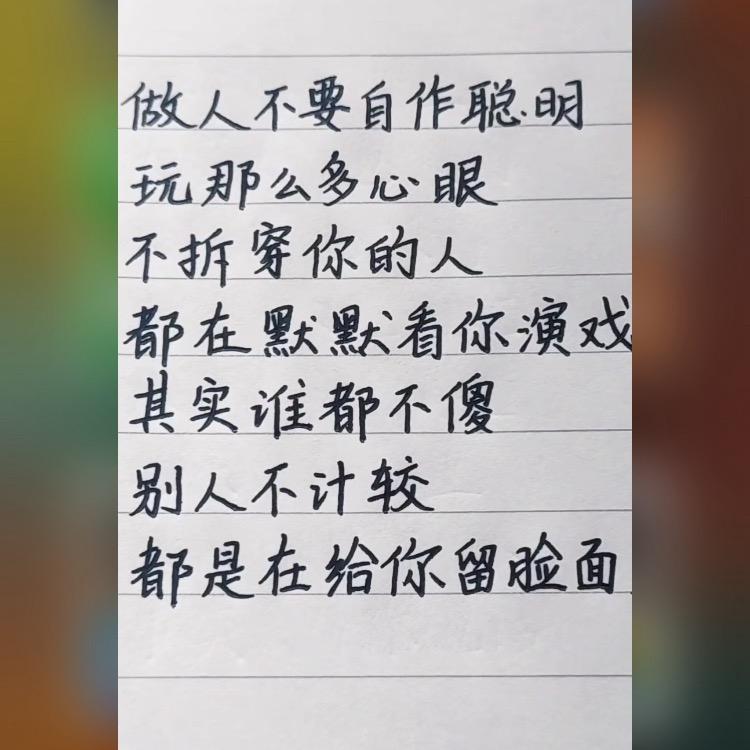 做人不要自作聪明
玩那么多心眼
不拆穿你的人
都在默默看你演戏
其实谁都不傻
别人不计较
都是在给你留脸面